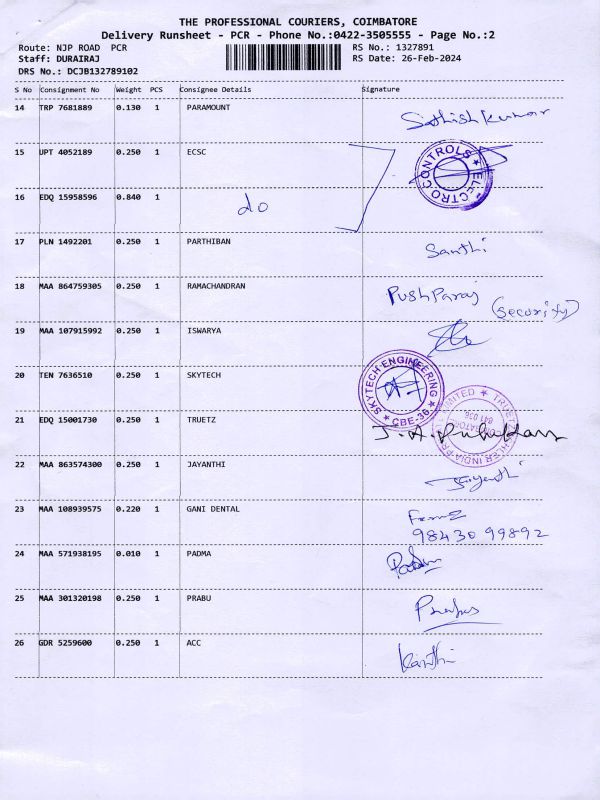 THE PROFESSIONAL COURIERS, COIMBATORE
Delivery Runsheet - PCR - Phone No.:0422-3505555 - Page No.:2
Route: NJP ROAD PCR
RS No.: 1327891
Staff: DURAIRAJ
RS Date: 26-Feb-2024
DRS No.: DCJB132789102
S No Consignment No Weight PCS Consignee Details Signature
14 TRP 7681889 0.130 1 PARAMOUNT Sathish kumar
15 UPT 4052189 0.250 1 ECSC ELECTRO CONTROLS
16 EDQ 15958596 0.840 1 do
17 PLN 1492201 0.250 1 PARTHIBAN Santhi
18 MAA 864759305 0.250 1 RAMACHANDRAN PushParaj (security)
19 MAA 107915992 0.250 1 ISWARYA
20 TEN 7636510 0.250 1 SKYTECH SKYTECH ENGINEERING CBE-36
21 EDQ 15001730 0.250 1 TRUETZ
22 MAA 863574300 0.250 1 JAYANTHI Jayanthi
23 MAA 108939575 0.220 1 GANI DENTAL
98430 99892
24 MAA 571938195 0.010 1 PADMA Padma
25 MAA 301320198 0.250 1 PRABU
26 GDR 5259600 0.250 1 ACC